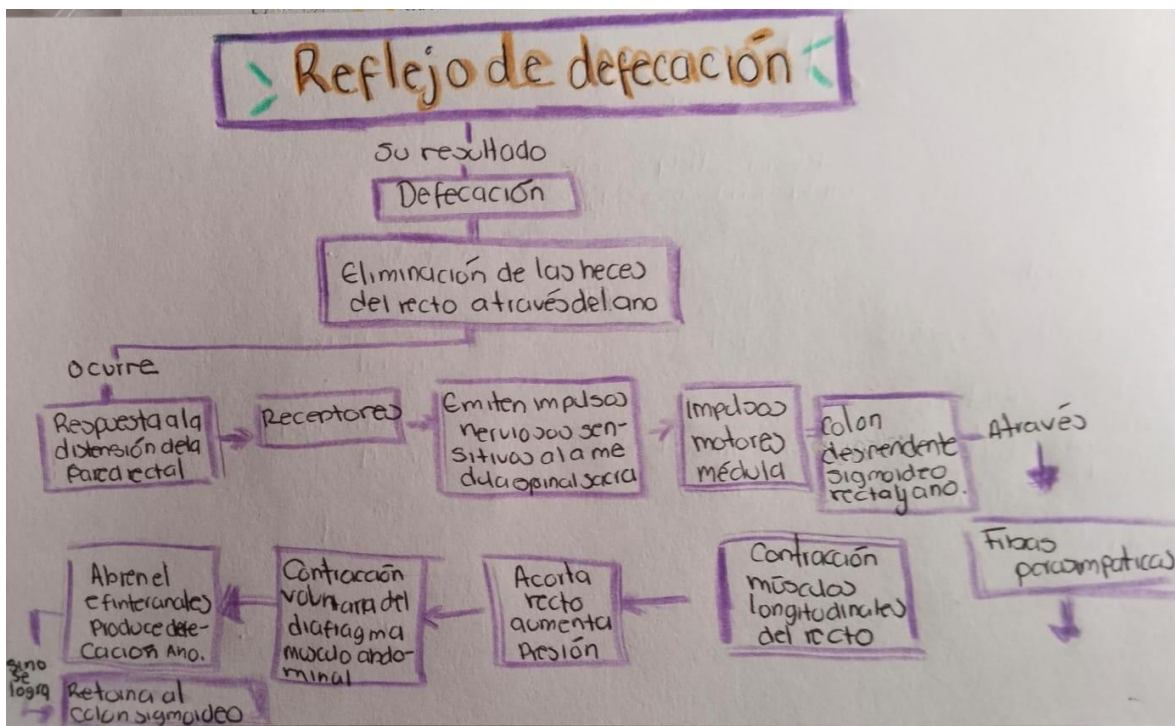 Reflejo de defecación
su resultado
Defecación
Eliminación de las heces
del recto através del ano
ocurre
Respuesta a la
distensión dela
Pared rectal
Receptores
Emiten impulsos
nerviosos sen-
sitivos a la me
dula espinal sacra
Impulsos
motores
médula
colon
desendente
sigmoideo
rectal y ano.
Através
Fibas
parasimpaticas
Contracción
músculos
longitudinales
del recto
Acorta
recto
aumenta
Presión
Contracción
voluntara del
diafragma
musculo andominal
Abren el
efinteranales
Produce defe-
cacion Ano.
sino
se
logra
Retorna al
colon sigmoideo